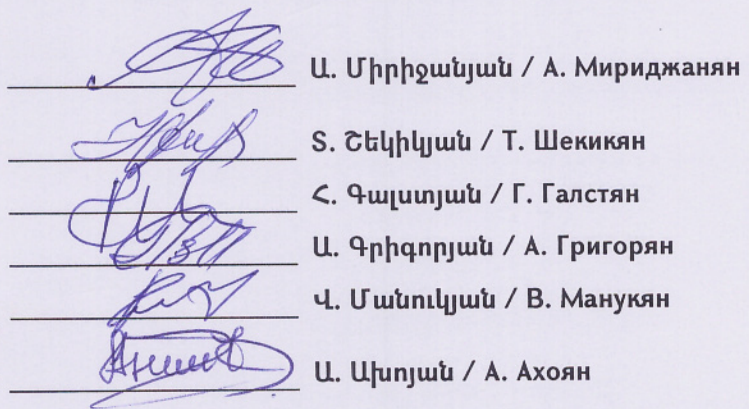 Ա. Միրիջանյան / А. Мириджанян
Տ. Շեկիկյան / Т. Шекикян
Հ. Գալստյան / Г. Галстян
Ա. Գրիգորյան / А. Григорян
Վ. Մանուկյան / В. Манукян
Ա. Ախոյան / А. Ахоян